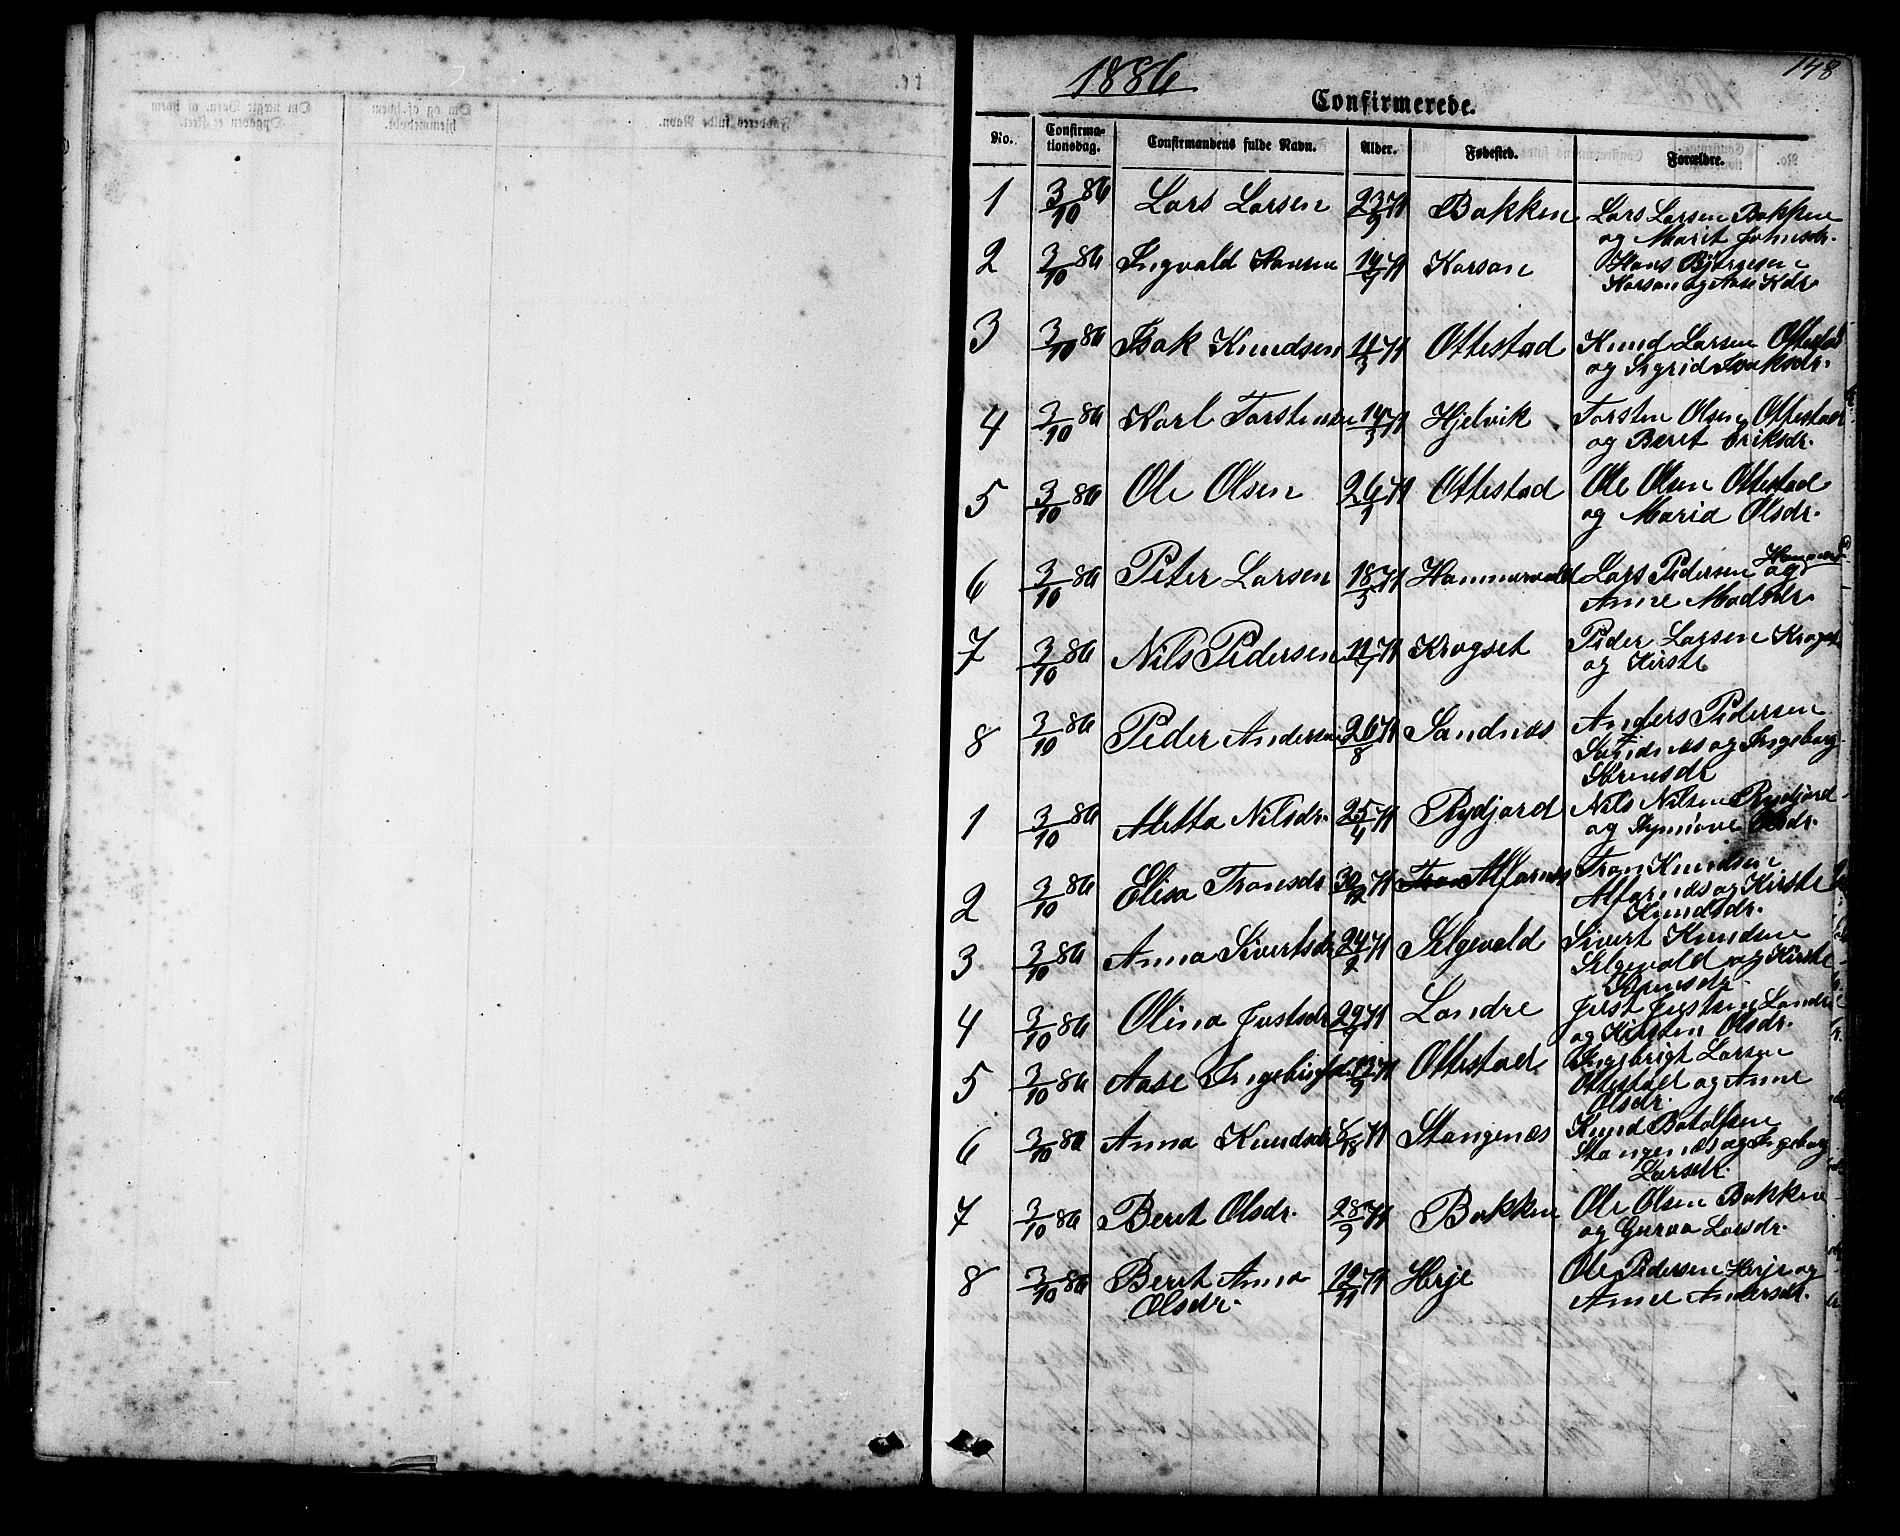 1886
148
Confirmerede.
No. Confirma- Confirmandens fulde Navn. Alder. Fødested. Forældre.
tionsdag.
1 3/10 86 Lars Larsen 23/9 71 Bakken Lars Larsen Bakken
og Marit Johnsdr.
2 3/10 86 Ingvald Hansen 71 Korsan Hans Bjørgesen
Korsan og Aase Kdr
3 3/10 86 Isak Knudsen 11/3 71 Ottestad Knud Larsen Ottestad
og Sigrid Isaksdr.
4 3/10 86 Karl Torstensen 14/3 71 Hjelvik Torsten Olsen Ottestad
og Beret Eriksdr.
5 3/10 86 Ole Olsen 26/1 71 Ottestad Ole Olsen Ottestad
og Maria Olsdr.
6 3/10 86 Peter Larsen 18/5 71 Hammervold Lars Pedersen
og
Anne Madsdr
7 3/10 86 Nils Pedersen 11/1 71 Krogset Peder Larsen Krogset
og Kirste
8 3/10 86 Peder Andersen 26/8 71 Sandnæs Anders Pedersen
Sandnæs og Ingeborg
Sørensdr
1 3/10 86 Aletta Nilsdr. 25/4 71 Rydjord Nils Nilsen Rydjord
og Synnøve Olsdr.
2 3/10 86 Elisa Tronsdr 30/12 71 Alfarnæs Tron Knudsen
Alfarnæs og Kirste
Knudsdr.
3 3/10 86 Anna Sivertsdr 24/2 71 Selgevold Sivert Knudsen
Selgevold og Kirste
4 3/10 86 Olina Justsdr 29/1 71 Landre Just Justsen Landre
og Kirsten Olsdr.
5 3/10 86 Aase 71 Ottestad Ingebrigt Larsen
Ottestad og Anne
Olsdr.
6 3/10 86 Anna Knudsdr 71 Stangenæs Knud Botolfsen
Stangenæs og Ingeborg
Larsdr.
7 3/10 86 Beret Olsdr. 28/9 71 Bakken Ole Olsen Bakken
og Guroa Larsdr.
8 3/10 86 Beret Anna 71 Herje Ole Pedersen Herje og
Olsdr. Anne Andersdr.